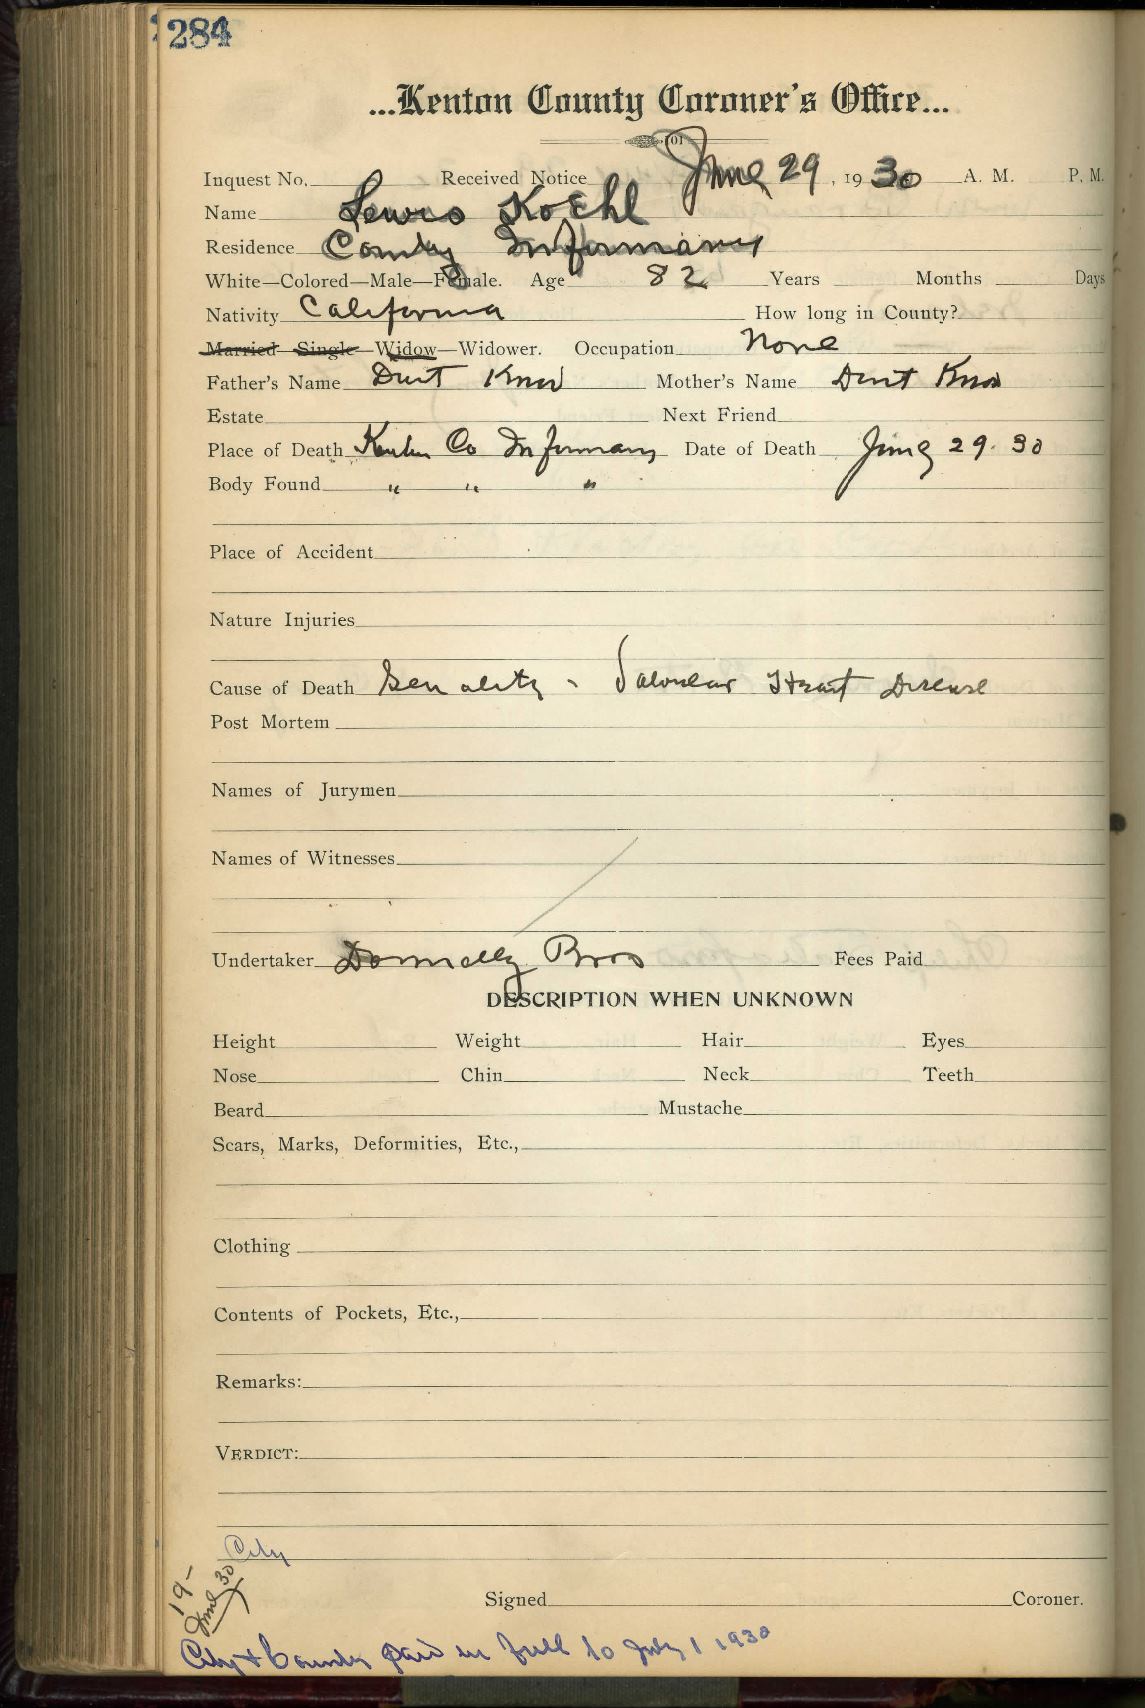 284
...Kenton County Coroner's Office...
Inquest No. Received Notice June 29, 1930 A. M. P. M.
Name Lewis Koehl
Residence County Infirmary
White—Colored—Male—Female. Age 82 Years Months Days
Nativity California How long in County?
Married Single—Widow—Widower. Occupation None
Father's Name Dont Know Mother's Name Dont Know
Estate Next Friend
Place of Death Kenton Co Infirmary Date of Death June 29. 30
Body Found " " "
Place of Accident
Nature Injuries
Cause of Death Senality - Valvular Heart Disease
Post Mortem
Names of Jurymen
Names of Witnesses
Undertaker Donnelly Bros Fees Paid
DESCRIPTION WHEN UNKNOWN
Height Weight Hair Eyes
Nose Chin Neck Teeth
Beard Mustache
Scars, Marks, Deformities, Etc.,
Clothing
Contents of Pockets, Etc.,
Remarks:
VERDICT:
City
19-
June 30
Signed Coroner.
City & County paid in full to July 1 1930